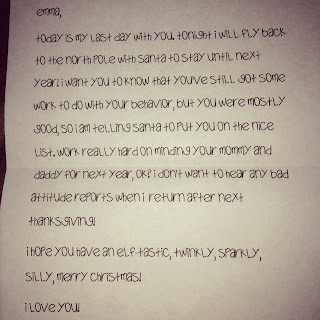 emma,
today is my last day with you. tonight i will fly back
to the north pole with santa to stay until next
year. i want you to know that you've still got some
work to do with your behavior, but you were mostly
good, so i am telling santa to put you on the nice
list. work really hard on minding your mommy and
daddy for next year, ok? i don't want to hear any bad
attitude reports when i return after next
thanksgiving!
i hope you have an elf-tastic, twinkly, sparkly,
silly, merry christmas!
i love you!